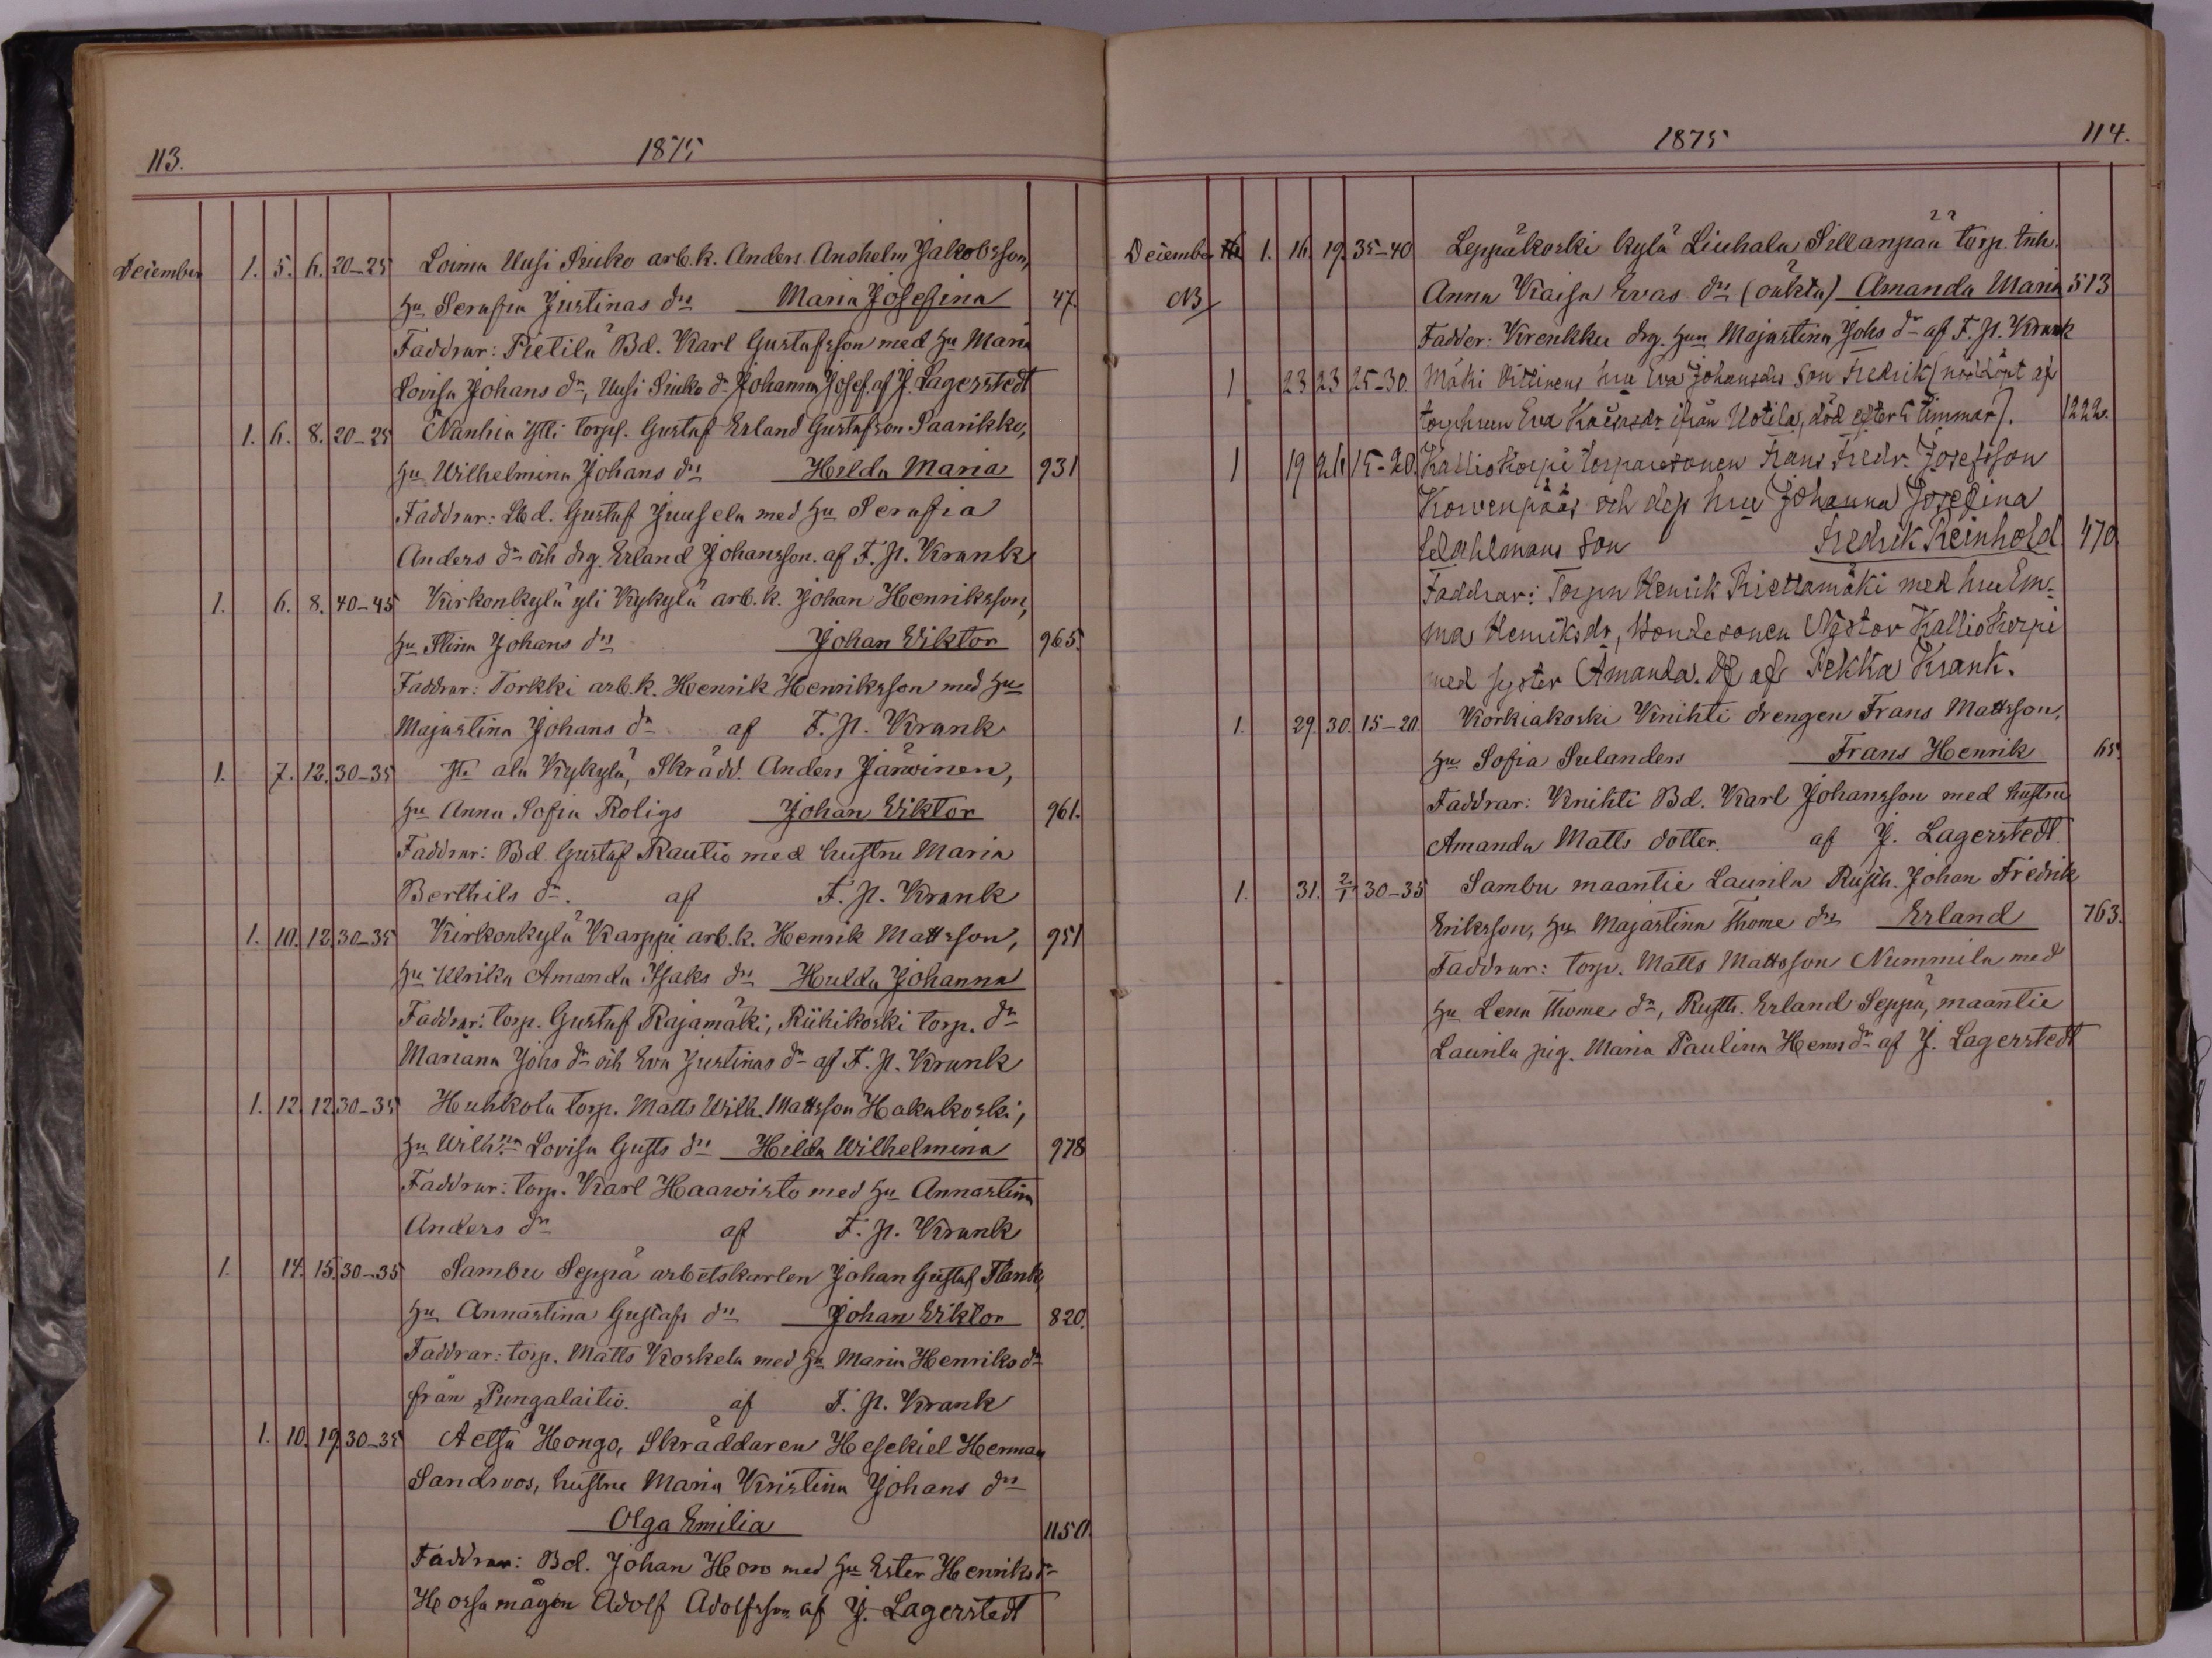 113. 1875
December 1. 5. 6. 20-25 Loima Uusi Siuko arb.k. Anders Anshelm Jakobsson,
hu Serafia Justinas drs Maria Josefina 47.
Faddrar: Pietilä Bd. Karl Gustafsson med hu Maria
Lovisa Johans dr, Uusi Siuko dr Johanna Josef. af J. Lagerstedt
1. 6. 8. 20-25 Nanhia Ylli torps. Gustaf Erland Gustafsson Saarikko,
hu Wilhelmina Johans drs Hilda Maria 931
Faddrar: Ld. Gustaf Juusela med hu Serafia
Anders dr och drg. Erland Johansson. af F. P. Krank
1. 6. 8. 40-45 Kirkonkylä yli Kykylä arb.k. Johan Henriksson,
hu Stina Johans drs Johan Viktor 965.
Faddrar: Torkki arb.k. Henrik Henriksson med hu
Majastina Johans dr af F. P. Krank
1. 7. 12. 30-35 ala Kykylä, Skrädd. Anders Järwinen,
hu Anna Sofia Roligs Johan Viktor 961.
Faddrar: Bd. Gustaf Rautio med hustru Maria
Berthils dr. af F. P. Krank
1. 10. 12. 30-35 Kirkonkylä Karppi arb.k. Henrik Mattsson, 951
hu Ulrika Amanda Isaks drs Hulda Johanna
Faddrar: torp. Gustaf Rajamäki, Riihikoski torp. dr
Mariana Johs dr och Eva Justinas dr af F. P. Krank
1. 12. 12. 30-35 Huhkola torp. Matts Wilh. Mattsson Hakakoski,
hu Wilhna Lovisa Gusts drs Hilda Wilhelmina 978
Faddrar: torp. Karl Haawisto med hu Annastina
Anders dr af F. P. Krank
1. 14. 15. 30-35 Sambu Seppä arbetskarlen Johan Gustaf Flank,
hu Annastina Gustafs drs Johan Viktor 820.
Faddrar: torp. Matts Koskela med hu Maria Henriks dr
från Pungalaitio. af F. P. Krank
1. 10. 19. 30-35 Aetsä Hongo, Skräddaren Hesekiel Herman
Sandroos, hustru Maria Kristina Johans drs
Olga Emilia 1150.
Faddrar: Bd. Johan Horo med hu Ester Henriks dr
Horsa mågen Adolf Adolfsson af J. Lagerstedt
1875 114.
December 1. 16. 19. 35-40 Leppäkoski kylä Liuhala Sillanpää torp. enk.
NB Anna Kaisa Evas drs (oäkta) Amanda Maria 513
Fadder: Krenkku drg. hun Majastina Johs dr af F. P. Krank
1 23 23 25-30. Mäki Vittinens hru Eva Johansdrs Son Fredrik (nöddöpt af
torphrun Eva ifrån Uotila, död efter 5 timmar). 1222.
1 19 26 15-20. Kalliokorpi torparesonen Frans Fredr. Josefsson
Korvenpääs och dess hru Johanna Josefina
Sehlmans Son Fredrik Reinhold 470
Faddrar: Torpn Henrik Riettamäki med hru Em-
ma Henriksdr, bondesonen Nestor Kalliokorpi
med syster Amanda. Df af Pekka Krank.
1. 29. 30. 15-20. Korkiakoski Knihti drengen Frans Mattsson,
hu Sofia Sulanders Frans Henrik 65.
Faddrar: Knihti Bd. Karl Johansson med hustru
Amanda Matts dotter. af J. Lagerstedt.
1. 31. 2/1 30-35 Sambu maantie Laurila Rusth. Johan Fredrik
Eriksson, hu Majastina Thome drs Erland 763.
Faddrar: torp. Matts Mattsson Nummila med
hu Lena Thome dr, Rusth. Erland Seppä, maantie
Laurila pig. Maria Paulina Henrs dr af J. Lagerstedt